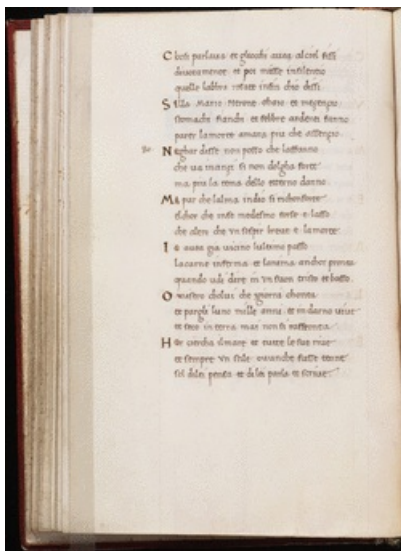 Chosi parlaua et gliocchi auea al ciel fissi
diuotamente et poi misse in silentio
quelle labbra rosate insin chio dissi
Silla Mario Nerone Ghaio et mezentio
stomachi fianchi et febbre ardenti fanno
parer la morte amara piu che assentio
Neghar disse non posso che laffanno
che ua inanzi si non dolgha forte
ma piu la tema dello etterno danno
Ma pur che lalma in dio si richonforte
el chor che inse medesimo forse e lasso
che altro che vn sospir breue e la morte
Io auea gia uicino lultimo passo
la carne inferma et lanima anchor pronta
quando udi dire in vn suon tristo et basso
O misero cholui che giorni chonta
et pargli luno mille anni et indarno uiue
et seco in terra mai non si raffronta
Her ciercha il mare et tutte le sue riue
et sempre vn stile ouunche fusse tenne
sol dilei pensa et di lei parla et scriue